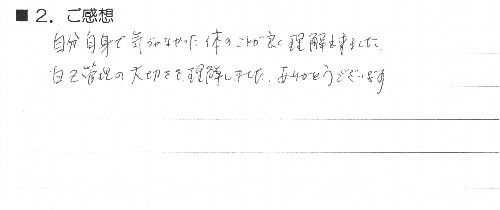 ■2. ご感想
自分自身で気づかなかった体のことが良く理解出来ました。
自己管理の大切さを理解しました。ありがとうございます